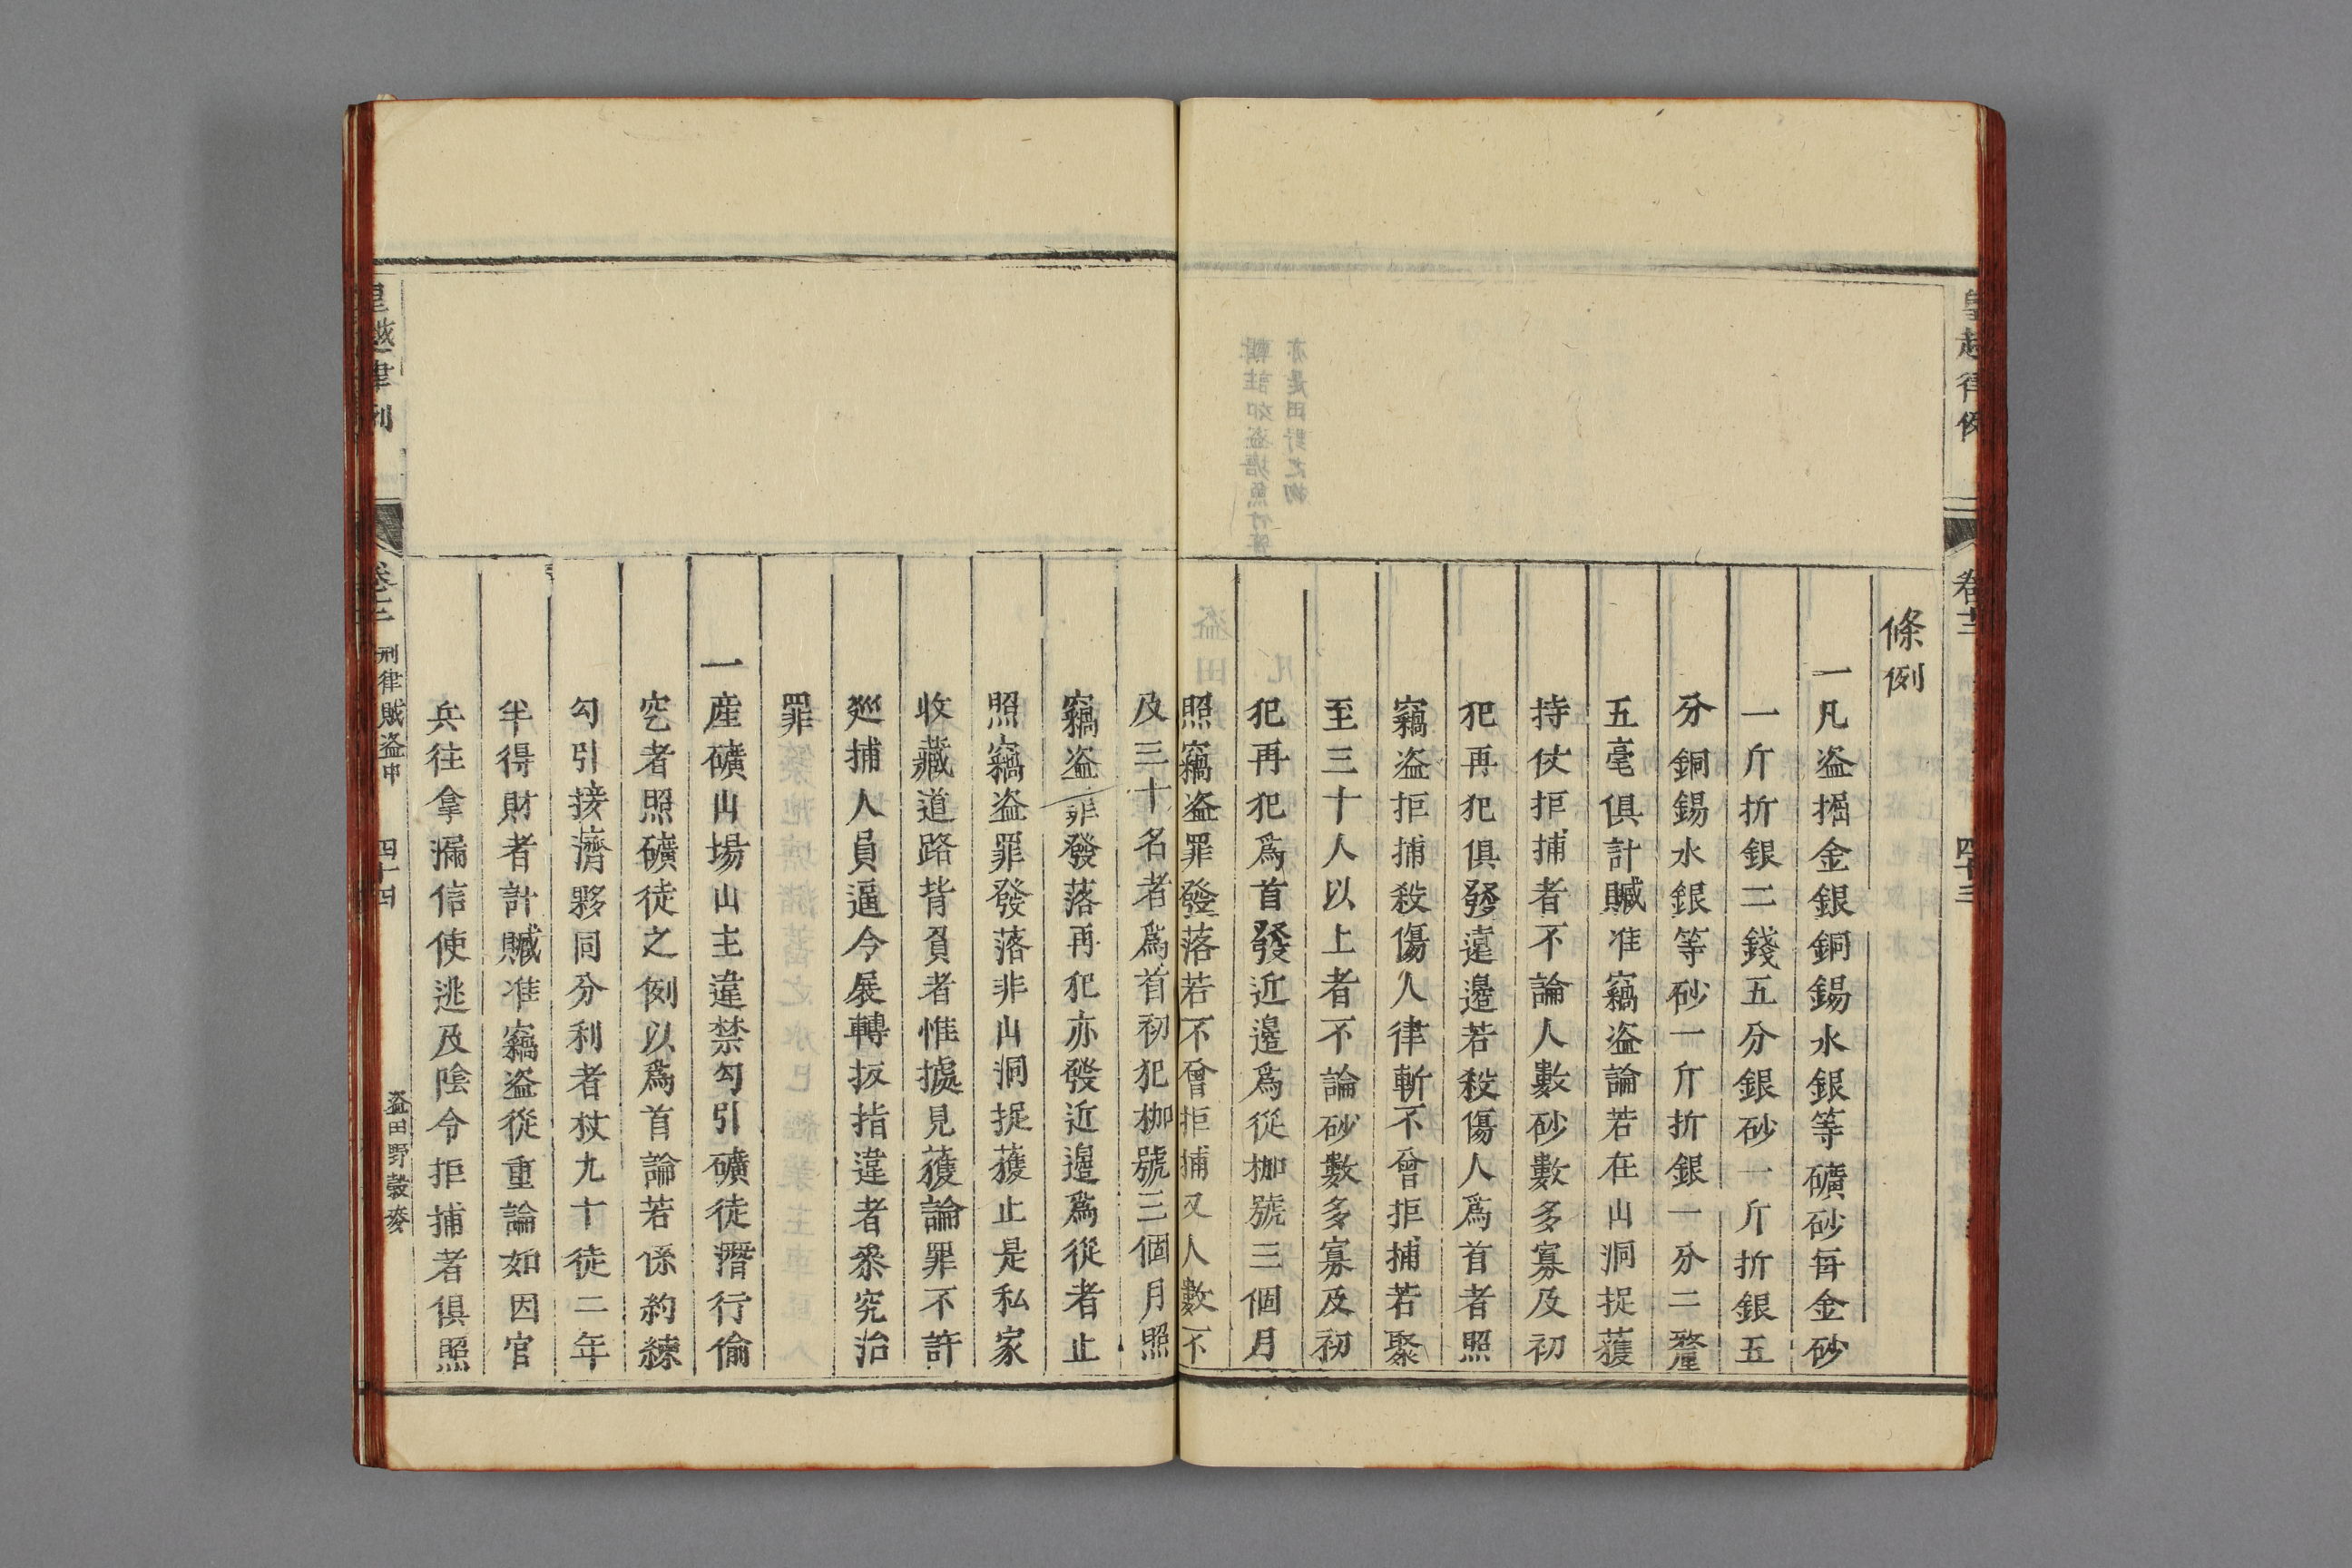 條例
一凡盗掘金銀銅錫水銀等礦砂每金砂
一斤折銀二錢五分銀砂一斤折銀五
分銅錫水銀等砂一斤折銀一分二釐
五毫俱計贓准竊盗論若在山洞捉獲
持仗拒捕者不論人數砂數多寡及初
犯再犯俱發遠邊若殺傷人爲首者照
竊盗拒捕殺傷人律斬不曾拒捕若聚
至三十人以上者不論砂數多寡及初
犯再犯爲首發近邊爲從枷號三個月
照竊盗罪發落若不曾拒捕又人數不
及三十名者爲首初犯枷號三個月照
竊盗罪發落再犯亦發近邊爲從者止
照竊盗罪發落非山洞捉獲止是私家
收藏道路背負者惟據見獲論罪不許
巡捕人員逼令展轉扳指違者叅究治
罪
一産礦山場山主違禁勾引礦徒潛行偷
穵者照礦徒之例以爲首論若係約練
勾引接濟夥同分利者杖九十徒二年
半得財者計贓准竊盗從重論如因官
兵往拿漏信使逃及陰令拒捕者俱照
皇越律例 卷十三 刑律賊盗中 四十四 盗田野穀麥